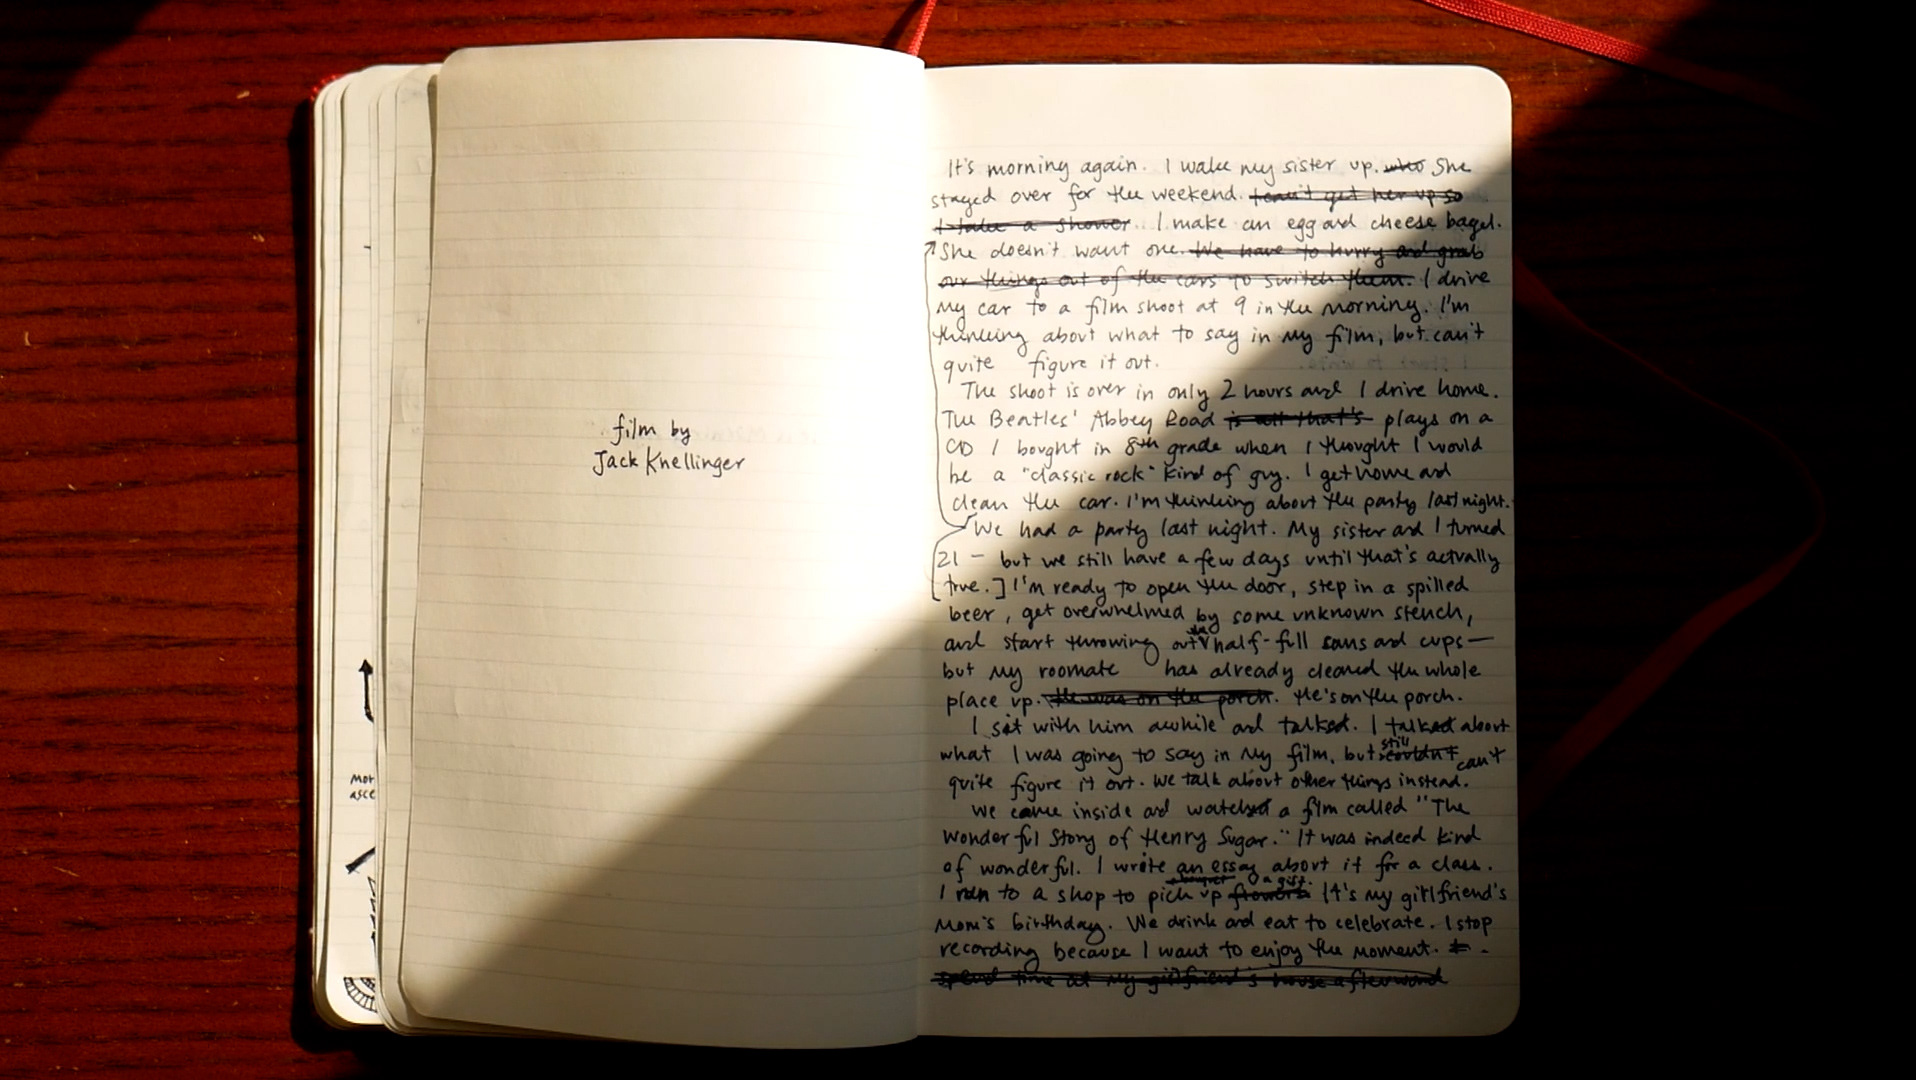 film by
Jack Knellinger
mor
asce
It's morning again. I wake my sister up. who She
stayed over for the weekend. I can't get her up so
I take a shower. I make an egg and cheese bagel.
She doesn't want one. We have to hurry and grab
our things out of the cars to switch them. I drive
my car to a film shoot at 9 in the morning. I'm
thinking about what to say in my film, but can't
quite figure it out.
The shoot is over in only 2 hours and I drive home.
The Beatles' Abbey Road is all that's plays on a
CD I bought in 8th grade when I thought I would
be a "classic rock" kind of guy. I get home and
clean the car. I'm thinking about the party last night.
We had a party last night. My sister and I turned
21 — but we still have a few days until that's actually
true.] I'm ready to open the door, step in a spilled
beer, get overwhelmed by some unknown stench,
and start throwing out the half-full cans and cups—
but my roomate has already cleaned the whole
place up. He was on the porch. He's on the porch.
I sit with him awhile and talked. I talked about
what I was going to say in my film, but still couldn't can't
quite figure it out. We talk about other things instead.
We came inside and watched a film called "The
Wonderful Story of Henry Sugar." It was indeed kind
of wonderful. I wrote an essay about it for a class.
I run to a shop to pick up flowers a gift. It's my girlfriend's
Mom's birthday. We drink and eat to celebrate. I stop
recording because I want to enjoy the moment.
spend time at my girlfriend's house afterward